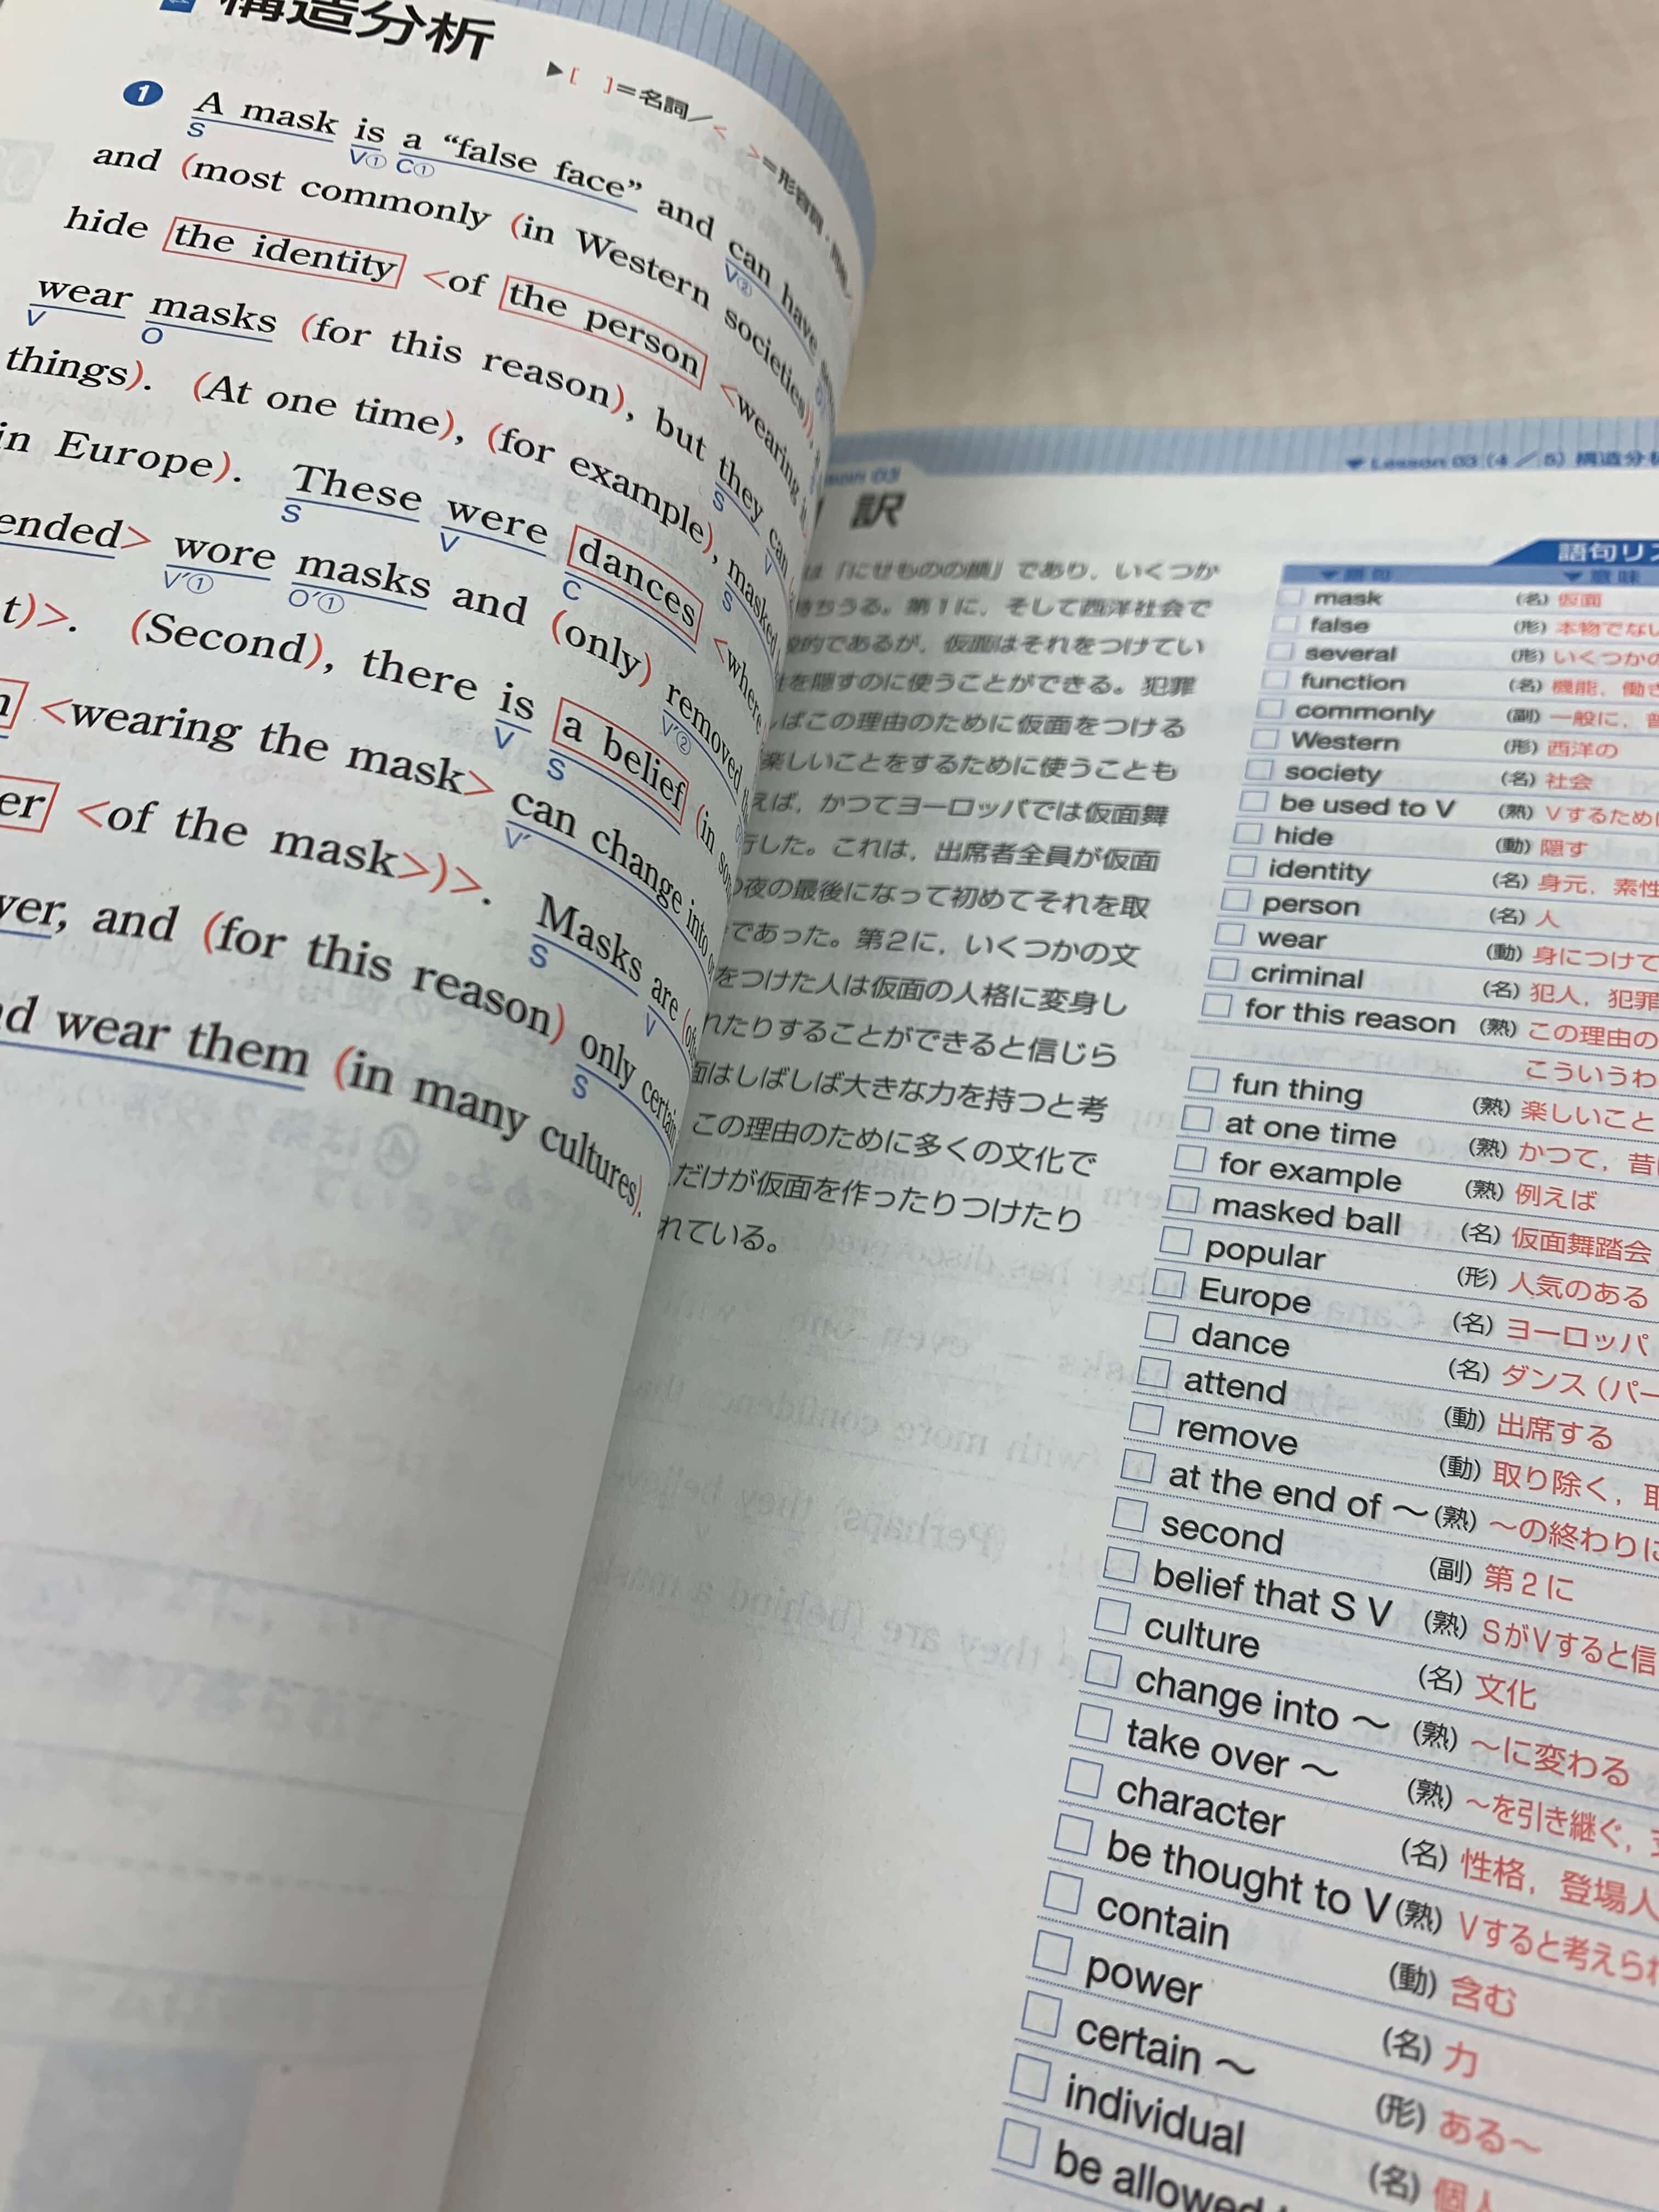 構造分析
▶[ ]=名詞/< >=形容詞
1 A mask is a “false face” and can have
S V① C① V②
and (most commonly (in Western societies)),
hide the identity <of the person <wearing it
wear masks (for this reason), but they can
V O S V
things). (At one time), (for example), masked
S
in Europe). These were dances <where
S V C
ended> wore masks and (only) removed
V'① O'① V'②
t)>. (Second), there is a belief (in
V S
<wearing the mask> can change into
V'
er <of the mask>)>. Masks are
S V
ver, and (for this reason) only certain
S
d wear them (in many cultures).
Lesson 03 (4/5) 構造分
訳
は「にせものの顔」であり,いくつか
持ちうる。第1に,そして西洋社会で
般的であるが,仮面はそれをつけてい
性を隠すのに使うことができる。犯罪
ばこの理由のために仮面をつける
楽しいことをするために使うことも
えば,かつてヨーロッパでは仮面舞
行した。これは,出席者全員が仮面
の夜の最後になって初めてそれを取
であった。第2に,いくつかの文
をつけた人は仮面の人格に変身し
れたりすることができると信じら
面はしばしば大きな力を持つと考
この理由のために多くの文化で
だけが仮面を作ったりつけたり
れている。
語句リス
▼語句 ▼意味
mask (名) 仮面
false (形) 本物でない
several (形) いくつかの
function (名) 機能,働き
commonly (副) 一般に,普
Western (形) 西洋の
society (名) 社会
be used to V (熟) Vするため
hide (動) 隠す
identity (名) 身元,素性
person (名) 人
wear (動) 身につけて
criminal (名) 犯人,犯罪
for this reason (熟) この理由の
こういうわ
fun thing (熟) 楽しいこと
at one time (熟) かつて,昔
for example (熟) 例えば
masked ball (名) 仮面舞踏会
popular (形) 人気のある
Europe (名) ヨーロッパ
dance (名) ダンス(パー
attend (動) 出席する
remove (動) 取り除く,取
at the end of ～ (熟) ～の終わりに
second (副) 第2に
belief that S V (熟) SがVすると信
culture (名) 文化
change into ～ (熟) ～に変わる
take over ～ (熟) ～を引き継ぐ,
character (名) 性格,登場人
be thought to V (熟) Vすると考えられ
contain (動) 含む
power (名) 力
certain ～ (形) ある～
individual (名) 個人
be allowed